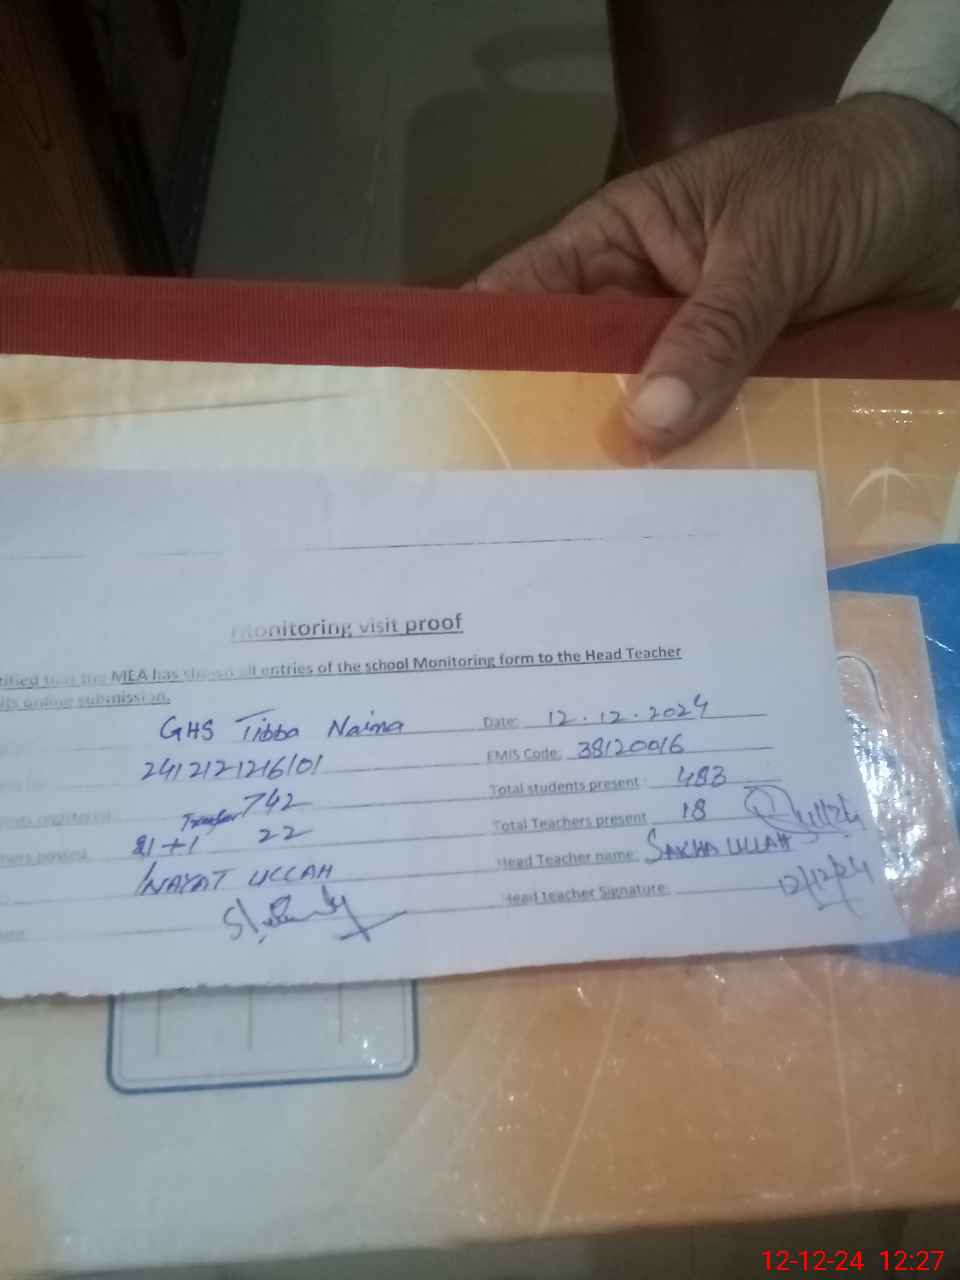 Monitoring visit proof
tified that the MEA has shown all entries of the school Monitoring form to the Head Teacher
its online submission.
GHS Tibba Naima Date: 12.12.2024
2412121216101 EMIS Code: 38120016
742 Total students present: 483
Transfer
21+1 22 Total Teachers present 18
INAYAT ULLAH Head Teacher name: SAKHA ULLAH
Head teacher Signature: 12/12/24
12-12-24 12:27